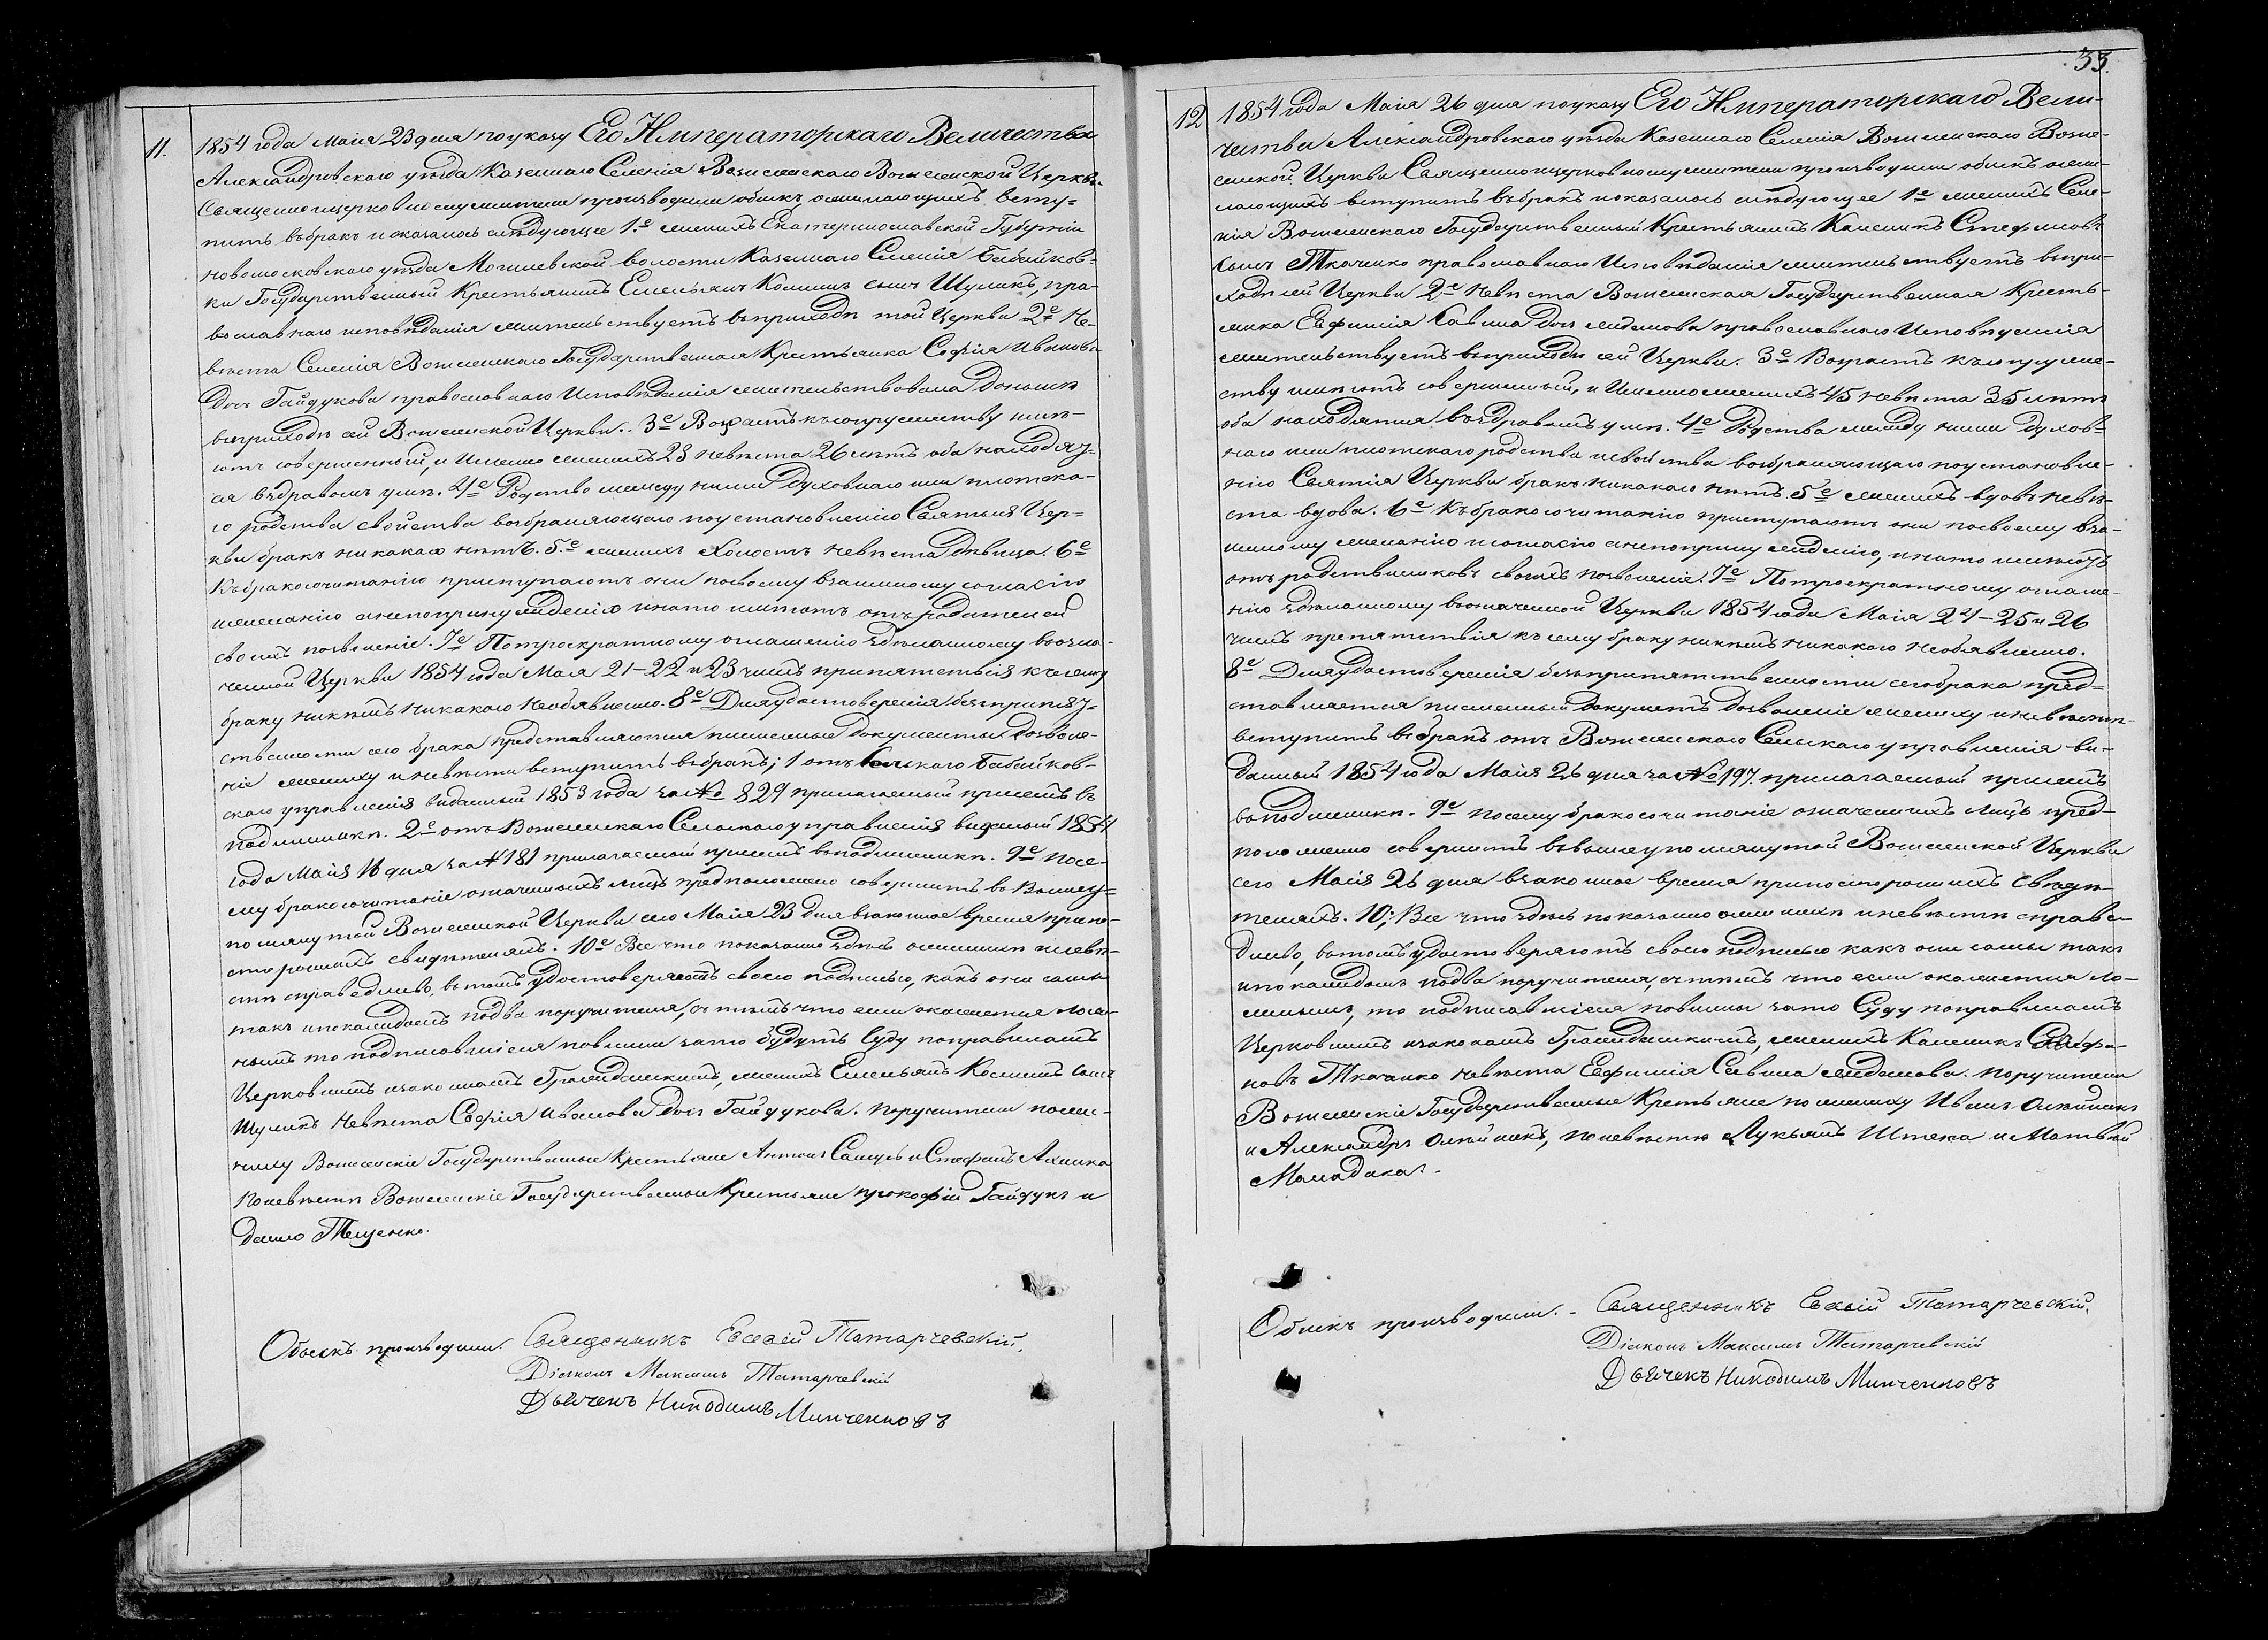 11.
1854 года Маія 23 дня по указу Его Императорскаго Величества
Александровскаго уѣзда Казеннаго Селенія Вознесенскаго Вознесенской Церкви
Священноцерковнослужители производили обыскъ, желающихъ всту-
пить въ бракъ и оказалось слѣдующее 1.е женихъ Екатеринославской Губерніи
Новомосковскаго уѣзда Могилевской волости Казеннаго Селенія Бабайков-
ки Государственный Крестьянинъ Емельянъ Козминъ сынъ Шуликъ, пра-
вославнаго исповѣданія жительствуетъ въ приходѣ той Церкви 2е Не-
вѣста Селенія Вознесенскаго Государственная Крестьянка Софія Иванова
Дочь Гайдукова православнаго Исповѣданія жительствовала Донынѣ
въ приходѣ сей Вознесенской Церкви. 3е Возрастъ къ супружеству имѣ-
ютъ совершенный, и Именно женихъ 23 невѣста 26 лѣтъ оба находят-
ся въ здравомъ умѣ. 4е Родство между ними Духовнаго или плотска-
го родства свойства возбраняющаго по установленію Святыя Цер-
кви бракъ никакаго нѣтъ. 5.е женихъ Холостъ невѣста Дѣвица. 6е
Къ бракосочитанію приступаютъ они по своему взаимному согласію
желанію а не по принужденію и на то имѣютъ отъ родителей
своихъ позволеніе. 7е По троекратному оглашенію зделанному в означа-
ченной Церкви 1854 года Маія 21-22 и 23 числъ припятствія къ сему
браку никѣмъ никакаго необявлено. 8е Для удостоверенія безприпят-
ственности сего брака представляются писменные Документы дозволе-
ніе жениху и невѣсти вступить въ бракъ; 1 отъ Сельскаго Бабайков-
скаго управленія виданный 1853 года за № 829 прилагаемый присемъ въ
подлинникѣ. 2е отъ Вознесенскаго Сельскаго управленія виданый 1854
года Маія 16 дня за № 181 прилагаемый присемъ въ подлинникѣ. 9е Посе-
му бракосочитаніе означенныхъ лицъ предположено совершить во Вышеу-
помянутой Вознесенской Церкви сего Маія 23 дня взаконное время при по-
стороннихъ свидѣтеляхъ. 10е Все что показано здѣсь о женихѣ и невѣ-
стѣ справедливо, вътомъ удостоверяютъ своею подписью, какъ они сами
такъ и по каждомъ по два поручителя, съ тѣмъ что если окажется лож-
нымъ то подписавшіеся повинны зато будутъ Суду по правиламъ
Церковнымъ изаконамъ Гражданскимъ, женихъ Емельянъ Козминъ сынъ
Шуликъ невѣста Софія Иванова Дочь Гайдукова. Поручители по же-
ниху Вознесенскіе Государственные Крестьяне Антонъ Самусь и Стефанъ
По невѣсти Вознесенскіе Государственные Крестьяне Прокофій Гайдукъ и
Данило Тещенко.
Обыскъ производили. Священникъ Евсевій Татарчевскій.
Діяконъ Максимъ Татарчевскій
Дьячекъ Никодимъ Минченковъ
33.
12
1854 года Маія 26 дня по указу Его Императорскаго Вели-
чества Александровскаго уѣзда Казеннаго Селенія Вознесенскаго Возне-
сенской Церкви Священноцерковнослужители производили обыскъ жела-
лающихъ вступить въ бракъ и оказалось слѣдующее 1е женихъ Селе-
нія Вознесенскаго Государственный Крестьянинъ Калиникъ Стефановъ
сынъ Ткаченко православнаго Исповѣданія жительствуетъ въ при-
ходѣ сей Церкви 2е Невѣста Вознесенская Государственная Кресть-
янка Евфимія Савина дочь Жданова православнаго Исповѣданія
жительствуетъ въ приходѣ сей Церкви. 3е Возрастъ къ супруже-
ству имѣютъ совершенный, и Именно женихъ 45 невѣста 35 лѣтъ
оба находятся въ здравомъ умѣ. 4е Родства между ними духов-
наго или плотскаго родства и свойства возбраняющаго по установле-
нію Святыя Церкви бракъ никакаго нѣтъ. 5е женихъ вдовъ невѣ-
ста вдова. 6е Къ бракосочитанію приступаютъ они по своему вза-
имному желанію и согласію а не по принужденію, и на то имѣютъ
отъ родственниковъ своихъ позволеніе. 7е По троекратному оглаше-
нію зделанному въ означенной Церкви 1854 года Маія 24-25 и 26
числъ препятствія къ сему браку никѣмъ никакаго необявлено.
8е Для удостоверенія безпрепятственности сего брака пред-
ставляется писменный Документъ дозволеніе жениху и невѣсти
вступить въ бракъ отъ Вознесенскаго Сельскаго управленія ви-
данный 1854 года Маія 26 дня за № 197. прилагаемый присемъ
въ подлинникѣ. 9е посему бракосочитаніе означенныхъ лицъ пред-
положено совершить въ вышеупомянутой Вознесенской Церкви
сего Маія 26 дня взаконное время при постороннихъ Свидѣ-
теляхъ. 10; Все что здѣсь показано о женихѣ и невѣсти справе-
дливо, вътомъ удостоверяютъ своею подписью какъ они сами такъ
и по каждомъ по два поручителя, съ тѣмъ что если окажется ло-
жнымъ, то подписавшіеся повинны зато Суду по правиламъ
Церковнымъ изаконамъ Гражданскимъ, женихъ Калиникъ Стефа-
новъ Ткаченко невѣста Евфимія Савина Жданова. Поручители
Вознесенскіе Государственные Крестьяне по жениху Иванъ Олейникъ
и Александръ Олейникъ, по невѣстѣ Лукьянъ Штепа и Матвѣй
Обыскъ производили. - Священникъ Евсевій Татарчевскій.
Діяконъ Максимъ Татарчевскій
Дьячекъ Никодимъ Минченковъ